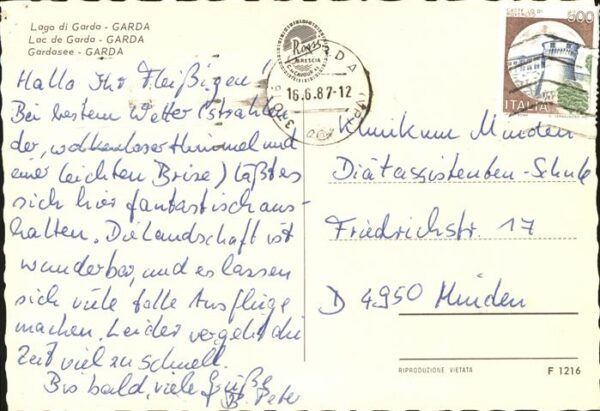 Lago di Garda - GARDA
Lac de Garda - GARDA
Gardasee - GARDA
Hallo Ihr Fleißigen!
Bei bestem Wetter (strahlen-
der, wolkenloser Himmel und
einer leichten Brise) läßt es
sich hier fantastisch aus-
halten. Die Landschaft ist
wunderbar, und es lassen
sich viele tolle Ausflüge
machen. Leider vergeht die
Zeit viel zu schnell.
Bis bald, viele Grüße
Peter
BRESCIA
GARDA
16.6.87-12
600
ITALIA
Klinikum Minden
Diätassistenten-Schule
Friedrichstr. 17
D 4950 Minden
RIPRODUZIONE VIETATA
F 1216